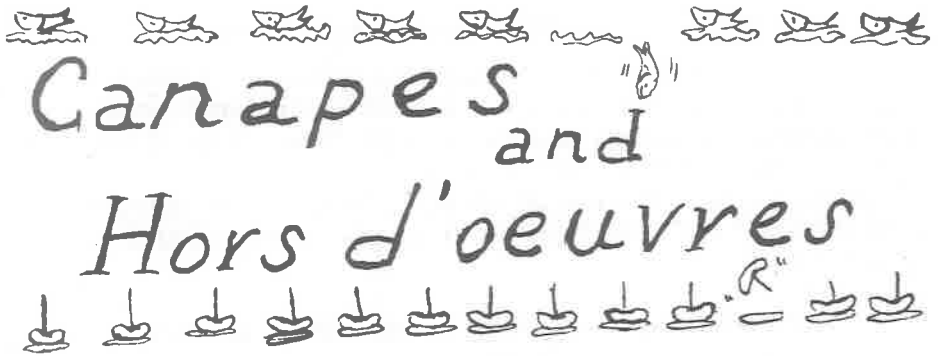 Canapes
and
Hors d'oeuvres
"R"